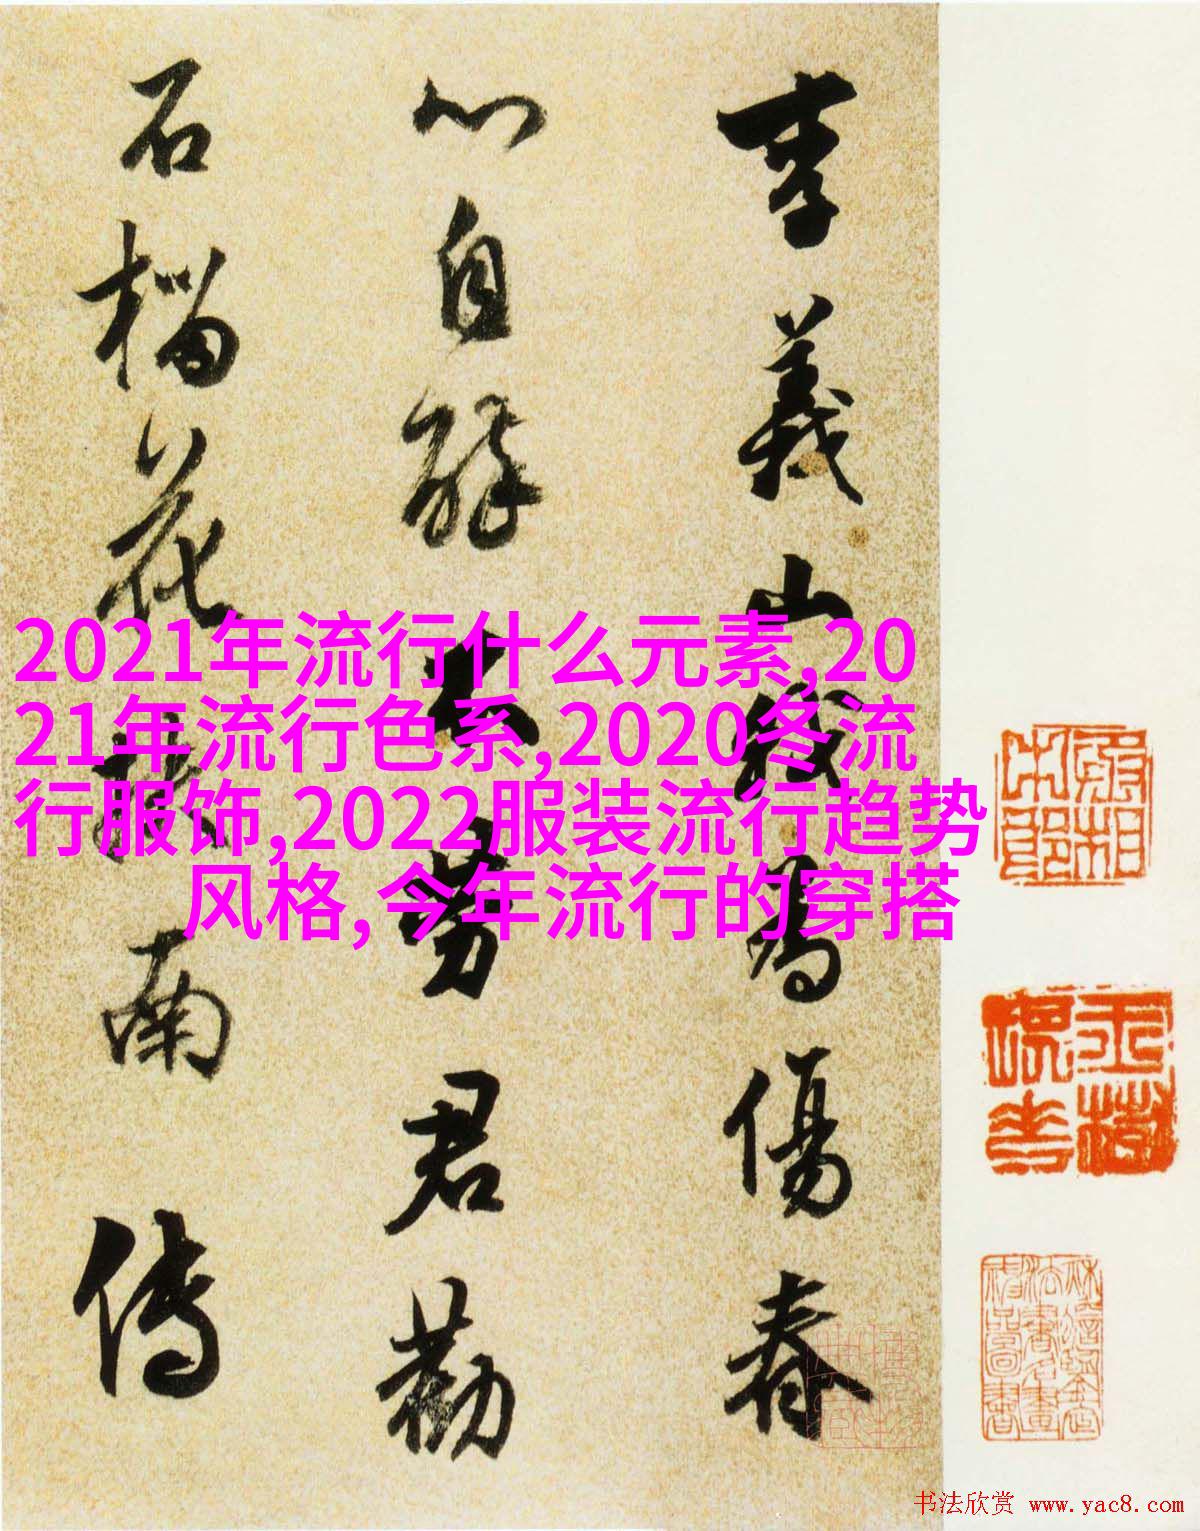 李義山我為傷春
心自醉不勞君勸
石榴花 南傳
2021年流行什么元素,20
21年流行色系,2020冬流
行服饰,2022服装流行趋势
风格,今年流行的穿搭
书法欣赏 www.yac8.com